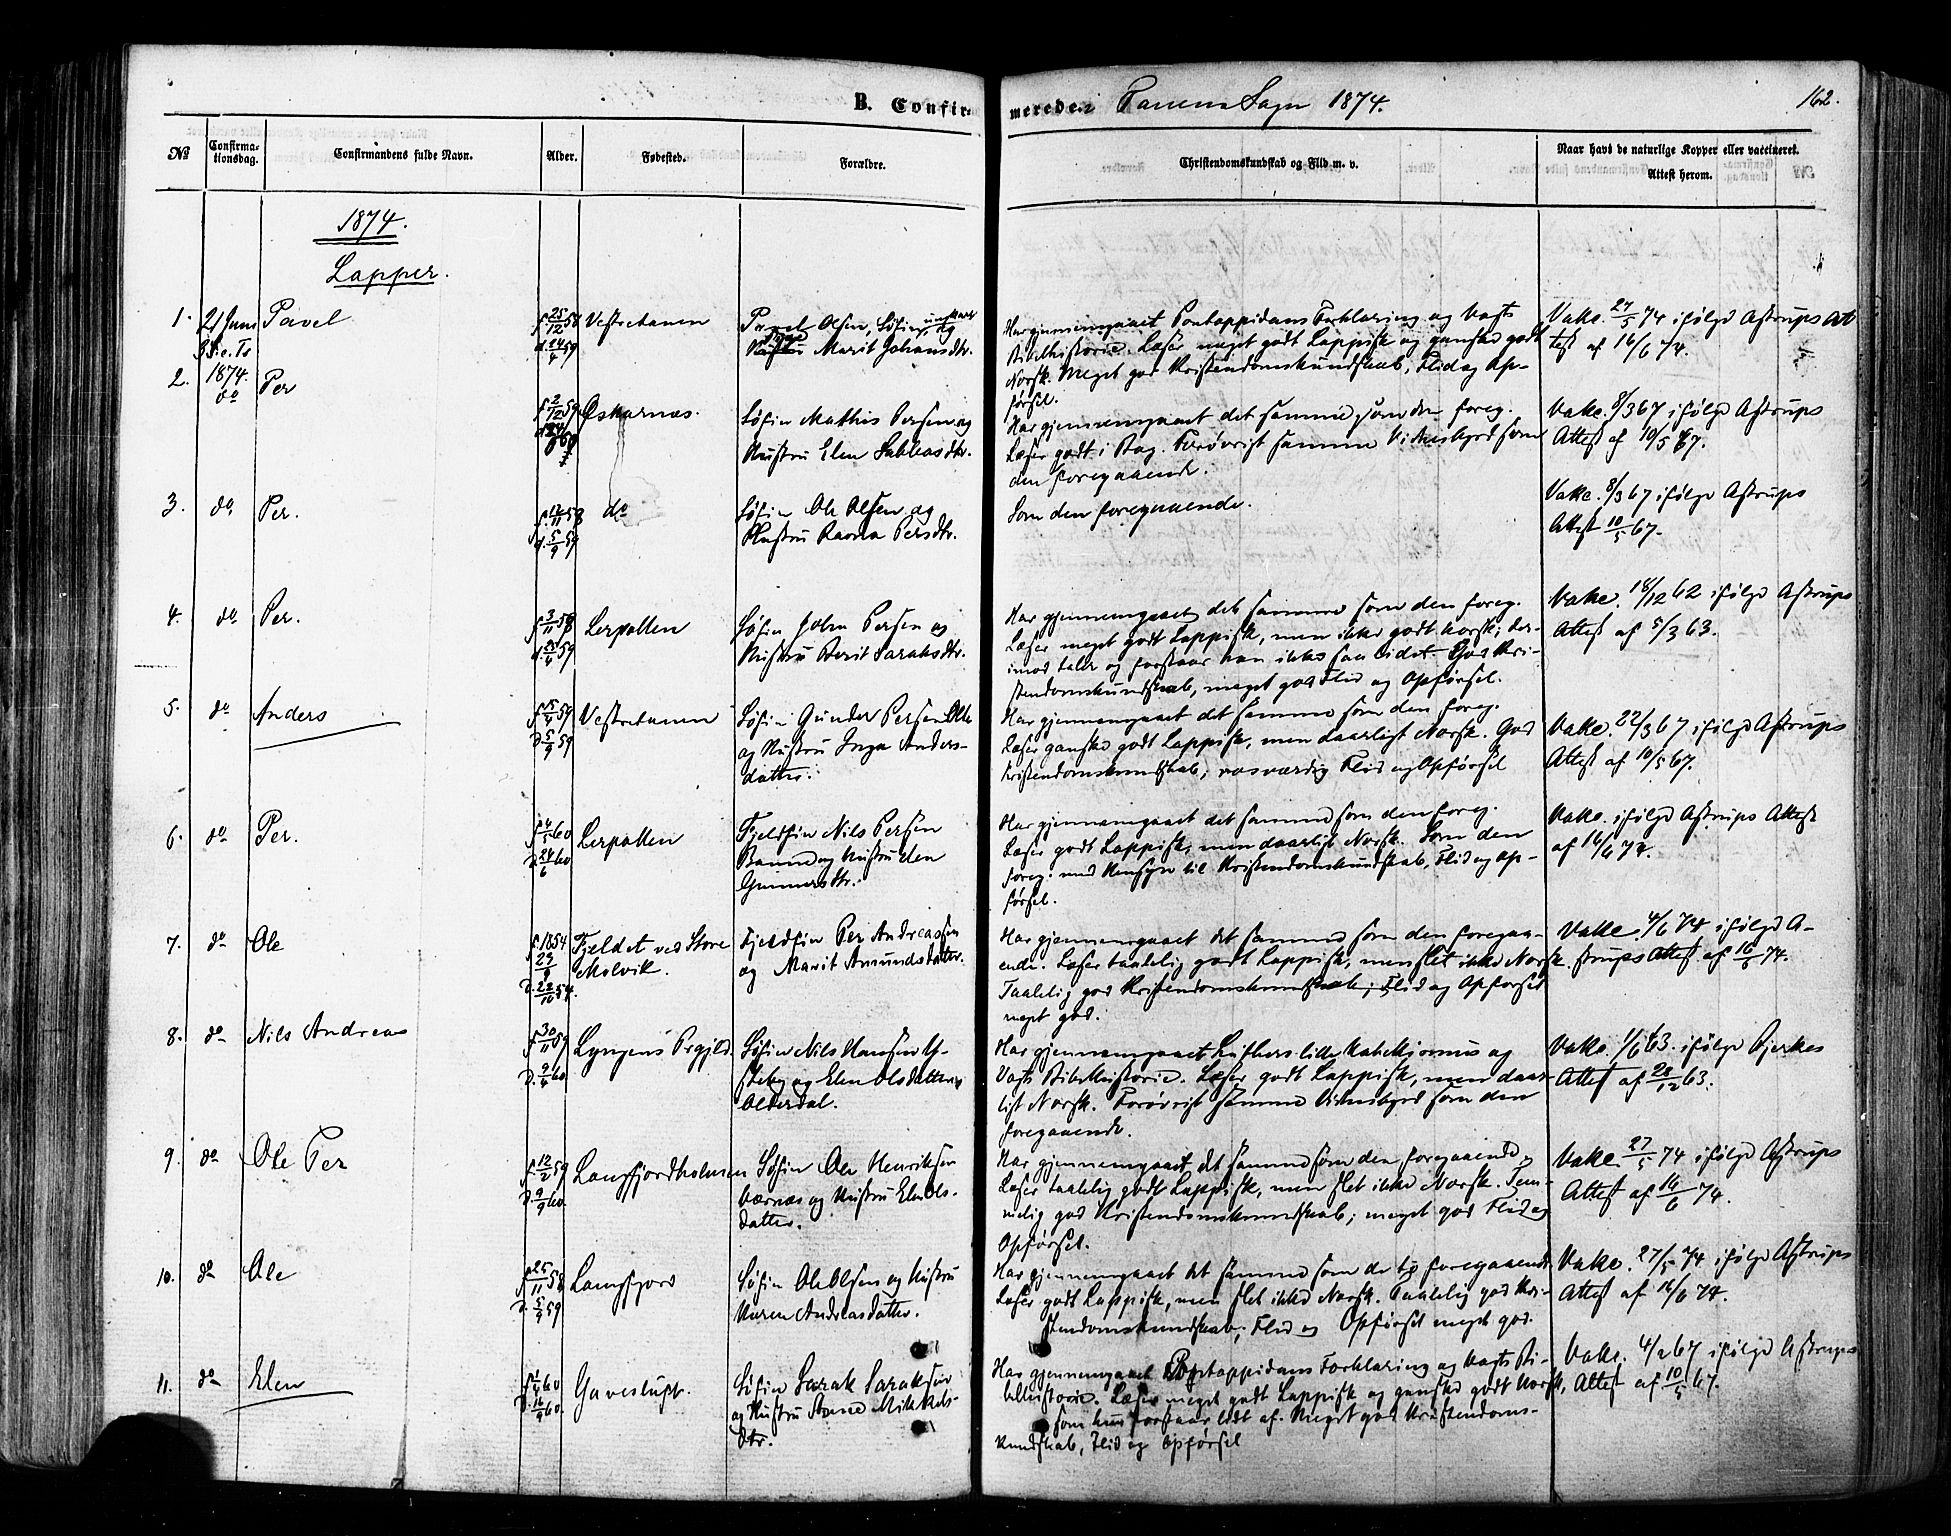 B. Confirmerede i Tanens Sogn 1874.
162.
No
Confirmationsdag.
Confirmandens fulde Navn.
Alder.
Fødested.
Forældre.
Christendomskundskab og Flid m. v.
Naar havt de naturlige Kopper eller vaccineret.
Attest herom.
1874.
Lapper.
1. 21 Juni
1874.
Pavel
f. 25/12 58
d. 24/4 59
Vestretanen
Olsen, Søfin, ungkarl og
Pige Marit Johansdtr.
Har gjennemgaaet Pontoppidans Forklaring og Vogts
Bibelhistorie. Læser meget godt Lappisk og ganske godt
Norsk. Meget god Kristendomskundskab, Flid og Op-
førsel.
Vakc. 27/5 74 ifølge Astrups At-
test af 16/6 74.
2. do
Per
Søfin Mathis Persen og
Hustru Elen
Har gjennemgaaet det samme som den foreg.
Læser godt i Bog. Forøvrigt samme Vidnesbyrd som
den foregaaende.
Vakc. 8/3 67 ifølge Astrups
Attest af 10/5 67.
3. do
Per.
d. 5/9 59
do
Søfin Ole Olsen og
Hustru Ravna Persdtr.
Som den foregaaende.
Vakc. 8/3 67 ifølge Astrups
Attest 10/5 67.
4. do
Per.
Lerpollen
Søfin John Persen og
Hustru Berit Saraksdtr.
Har gjennemgaaet det samme som den foreg.
Læser meget godt Lappisk, men ikke godt Norsk; der-
imod taler og forstaar han ikke saa lidet. God Kri-
stendomskundskab, meget god Flid og Opførsel.
Vakc. 18/12 62 ifølge Astrups
Attest af 5/3 63.
5. do
Anders
d. 5/9 59
Vestretanen
Søfin Gunder Persen
og Hustru Inga Anders-
datter.
Har gjennemgaaet det samme som den foreg.
Læser ganske godt Lappisk, men daarligt Norsk. God
Kristendomskundskab, rosværdig Flid og Opførsel
Vakc. 22/3 67 ifølge Astrups
Attest af 10/5 67.
6. do
Per.
f. 4/5 60
d. 24/6 60
Lerpollen
Fjeldfin Nils Persen
og Hustru Elen
Gunnersdtr.
Har gjennemgaaet det samme som den foreg.
Læser godt Lappisk, men daarligt Norsk. Som den
foreg. med Hensyn til Kristendomskundskab, Flid og Op-
førsel.
Vakc. ifølge Astrups Attest
af 16/6 74.
7. do
Ole
f. 1854
d. 22/10 54.
Fjeldet ved Store
Molvik.
Fjeldfin Per Andreassen
og Marit Amundsdatter.
Har gjennemgaaet det samme som den foregaa-
ende. Læser taalelig godt Lappisk, men slet ikke Norsk.
Taalelig god Kristendomskundskab; Flid og Opførsel
meget god.
Vakc. 4/6 74 ifølge A-
strups Attest af 16/6 74.
8. do
Nils Andreas
f. 30/11 59
d. 9/4 60
Lyngens Prgjld.
Søfin Nils Hansen
og Elen Olsdatter
Olderdal.
Har gjennemgaaet Luthers lille Katekismus og
Vogts Bibelhistorie. Læser godt Lappisk, men daar-
ligt Norsk. Forøvrigt samme Vidnesbyrd som den
foregaaende.
Vakc. 1/6 63. ifølge Bjerkes
Attest af 28/12 63.
9. do
Ole Per
f. 12/2 59
d. 9/9 60.
Langfjordholmen
Søfin Ole Henriksen
og Hustru Elen Ols-
datter.
Har gjennemgaaet det samme som den foregaaende
Læser taalelig godt Lappisk, men slet ikke Norsk. Tem-
melig god Kristendomskundskab; meget god Flid og
Opførsel.
Vakc. 27/5 74 ifølge Astrups
Attest af 16/6 74.
10. do
Ole
f. 25/11 58
d. 5/9 59
Langfjord
Søfin Ole Olsen og Hustru
Karen Andreasdatter.
Har gjennemgaaet det samme som de to foregaaende
Læser godt Lappisk, men slet ikke Norsk. Taalelig god Kri-
stendomskundskab; Flid og Opførsel meget god.
Vakc. 27/5 74 ifølge Astrups
Attest af 16/6 74.
11. do
Elen
d. 16/9 60.
Gaveslupt.
Søfin Sarak Saraksen
og Hustru Anne Mikkels-
dtr.
Har gjennemgaaet Pontoppidans Forklaring og Vogts Bi-
belhistorie. Læser meget godt Lappisk og ganske godt Norsk,
som hun forstaar lidt af. Meget god Kristendoms-
kundskab, Flid og Opførsel
Vakc. 67 ifølge Astrups
Attest af 10/5 67.